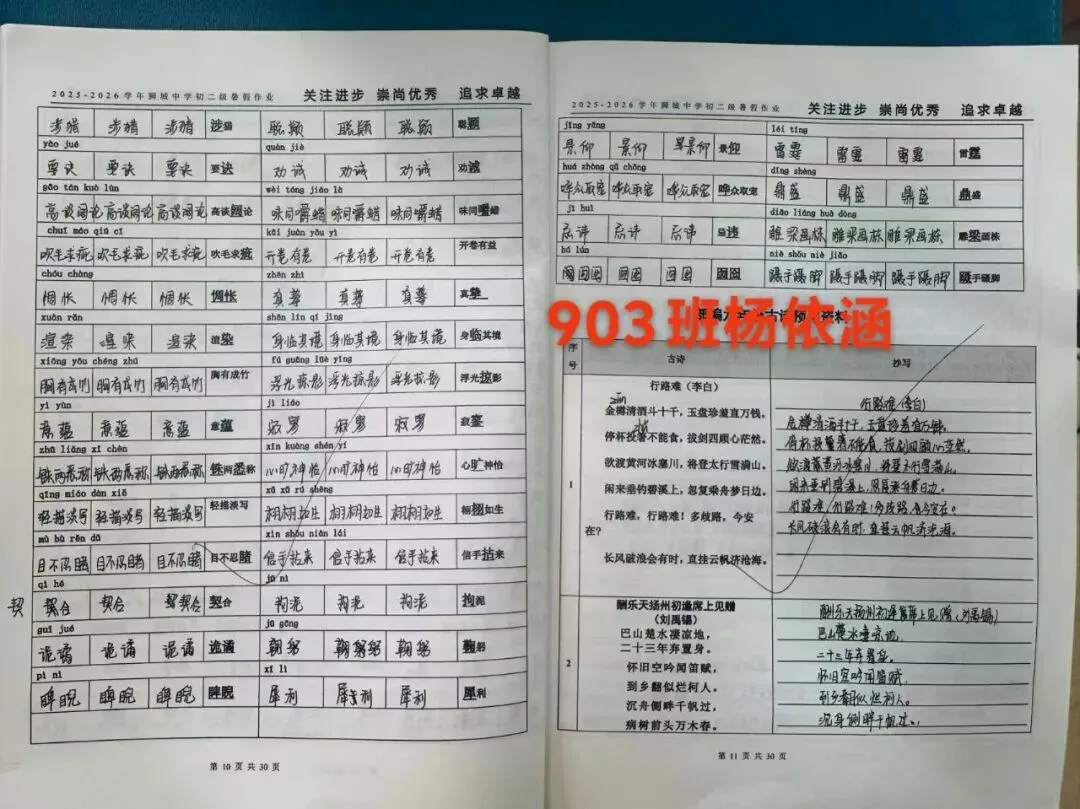 2025-2026学年狮城中学初二级暑假作业 关注进步 崇尚优秀 追求卓越
涉猎 涉猎 涉猎 涉猎 聪颖 聪颖 聪颖 聪颖
yào jué quàn jiè
要诀 要诀 要诀 要诀 劝诫 劝诫 劝诫 劝诫
gāo tán kuò lùn wèi tóng jiáo là
高谈阔论 高谈阔论 高谈阔论 高谈阔论 味同嚼蜡 味同嚼蜡 味同嚼蜡 味同嚼蜡
chuī máo qiú cī kāi juàn yǒu yì
吹毛求疵 吹毛求疵 吹毛求疵 吹毛求疵 开卷有益 开卷有益 开卷有益 开卷有益
chóu chàng zhēn zhì
惆怅 惆怅 惆怅 惆怅 真挚
xuàn rǎn shēn lín qí jìng
渲染 渲染 渲染 渲染 身临其境 身临其境 身临其境 身临其境
xiōng yǒu chéng zhú fú guāng lüè yǐng
胸有成竹 胸有成竹 胸有成竹 胸有成竹 浮光掠影 浮光掠影 浮光掠影 浮光掠影
yì yùn jì liáo
意蕴 意蕴 意蕴 意蕴 寂寥
zhū liǎng xī chèn xīn kuàng shén yí
铢两悉称 铢两悉称 铢两悉称 铢两悉称 心旷神怡 心旷神怡 心旷神怡 心旷神怡
qīng miáo dàn xiě xǔ xǔ rú shēng
轻描淡写 轻描淡写 轻描淡写 轻描淡写 栩栩如生 栩栩如生 栩栩如生 栩栩如生
mù bù rěn dǔ xìn shǒu niān lái
目不忍睹 目不忍睹 目不忍睹 目不忍睹 信手拈来 信手拈来 信手拈来 信手拈来
qì hé jū nì
契 契合 契合 契合 契合 拘泥 拘泥 拘泥 拘泥
guǐ jué jū gōng
诡谲 诡谲 诡谲 诡谲 鞠躬 鞠躬 鞠躬 鞠躬
pì nì xī lì
睥睨 睥睨 睥睨 睥睨 犀利 犀利 犀利 犀利
第 10 页 共 30 页
2025-2026学年狮城中学初二级暑假作业 关注进步 崇尚优秀 追求卓越
jǐng yǎng léi tíng
景仰 景仰 景仰 景仰 雷霆 雷霆 雷霆 雷霆
huá zhòng qǔ chǒng dǐng shèng
哗众取宠 哗众取宠 哗众取宠 哗众取宠 鼎盛 鼎盛 鼎盛 鼎盛
jì huì diāo liáng huà dòng
忌讳 忌讳 忌讳 忌讳 雕梁画栋 雕梁画栋 雕梁画栋 雕梁画栋
hú lún niè shǒu niè jiǎo
囫囵 蹑手蹑脚 蹑手蹑脚 蹑手蹑脚 蹑手蹑脚
903班杨依涵
序号 古诗 抄写
1
行路难（李白）
金樽清酒斗十千，玉盘珍羞直万钱。
停杯投箸不能食，拔剑四顾心茫然。
欲渡黄河冰塞川，将登太行雪满山。
闲来垂钓碧溪上，忽复乘舟梦日边。
行路难，行路难！多歧路，今安
在？
长风破浪会有时，直挂云帆济沧海。
行路难（李白）
长风破浪会有时，直挂云帆济沧海。
2
酬乐天扬州初逢席上见赠
（刘禹锡）
巴山楚水凄凉地，
二十三年弃置身。
怀旧空吟闻笛赋，
到乡翻似烂柯人。
沉舟侧畔千帆过，
病树前头万木春。
酬乐天扬州初逢席上见赠（刘禹锡）
巴山楚水凄凉地，
二十三年弃置身。
怀旧空吟闻笛赋，
到乡翻似烂柯人。
沉舟侧畔千帆过，
第 11 页 共 30 页